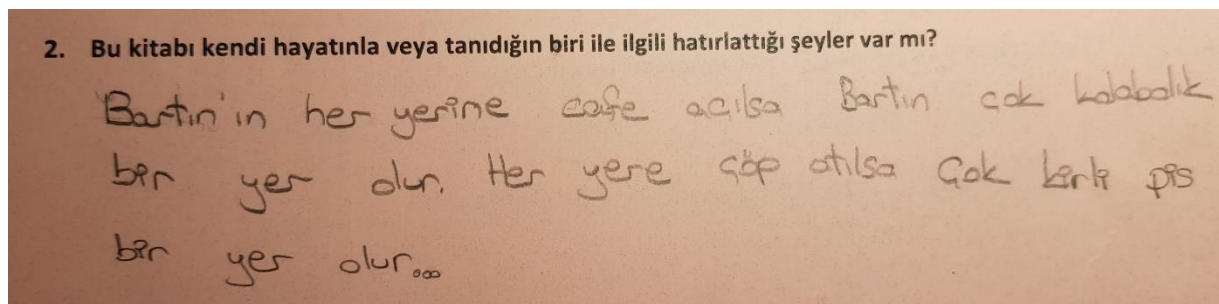 2. Bu kitabı kendi hayatınla veya tanıdığın biri ile ilgili hatırlattığı şeyler var mı?
Bartın'ın her yerine cafe açılsa Bartın çok kalabalık
bir yer olur. Her yere çöp atılsa Çok kirli pis
bir yer olur...